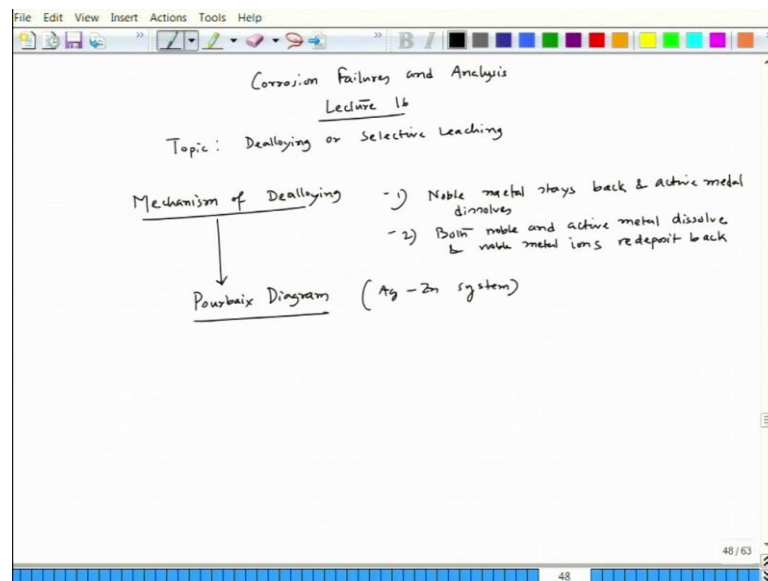 File Edit View Insert Actions Tools Help
B I
Corrosion Failures and Analysis
Lecture 16
Topic: Dealloying or Selective Leaching
Mechanism of Dealloying
-1) Noble metal stays back & active medal
dissolves
-2) Both noble and active metal dissolve
& noble metal ions redeposit back
Pourbaix Diagram (Ag-Zn system)
48/63
48